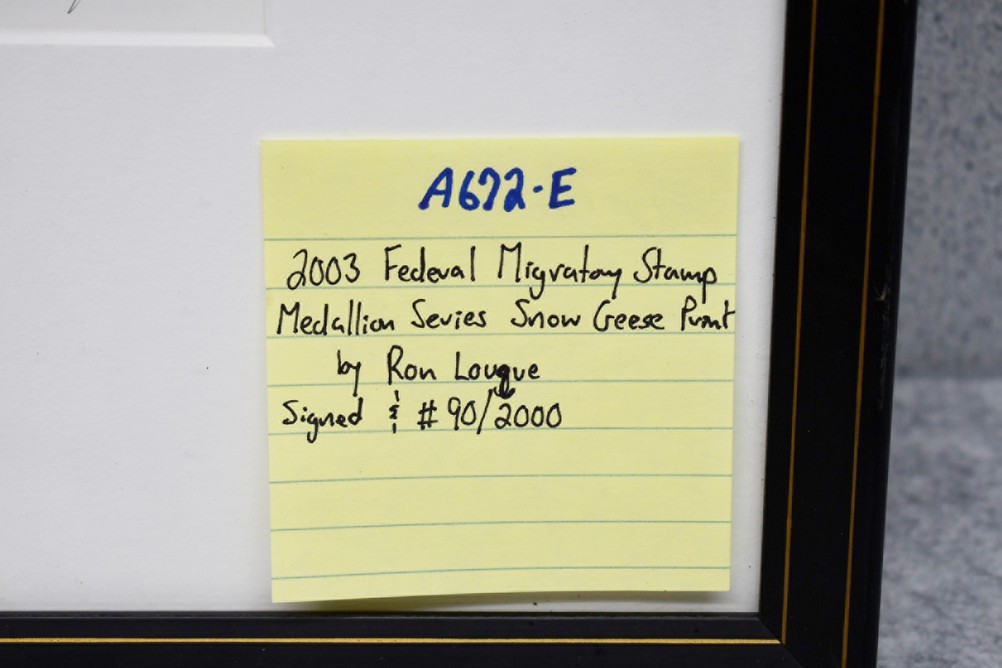 A672-E
2003 Federal Migratory Stamp
Medallion Series Snow Geese Print
by Ron Louque
Signed & # 90/2000